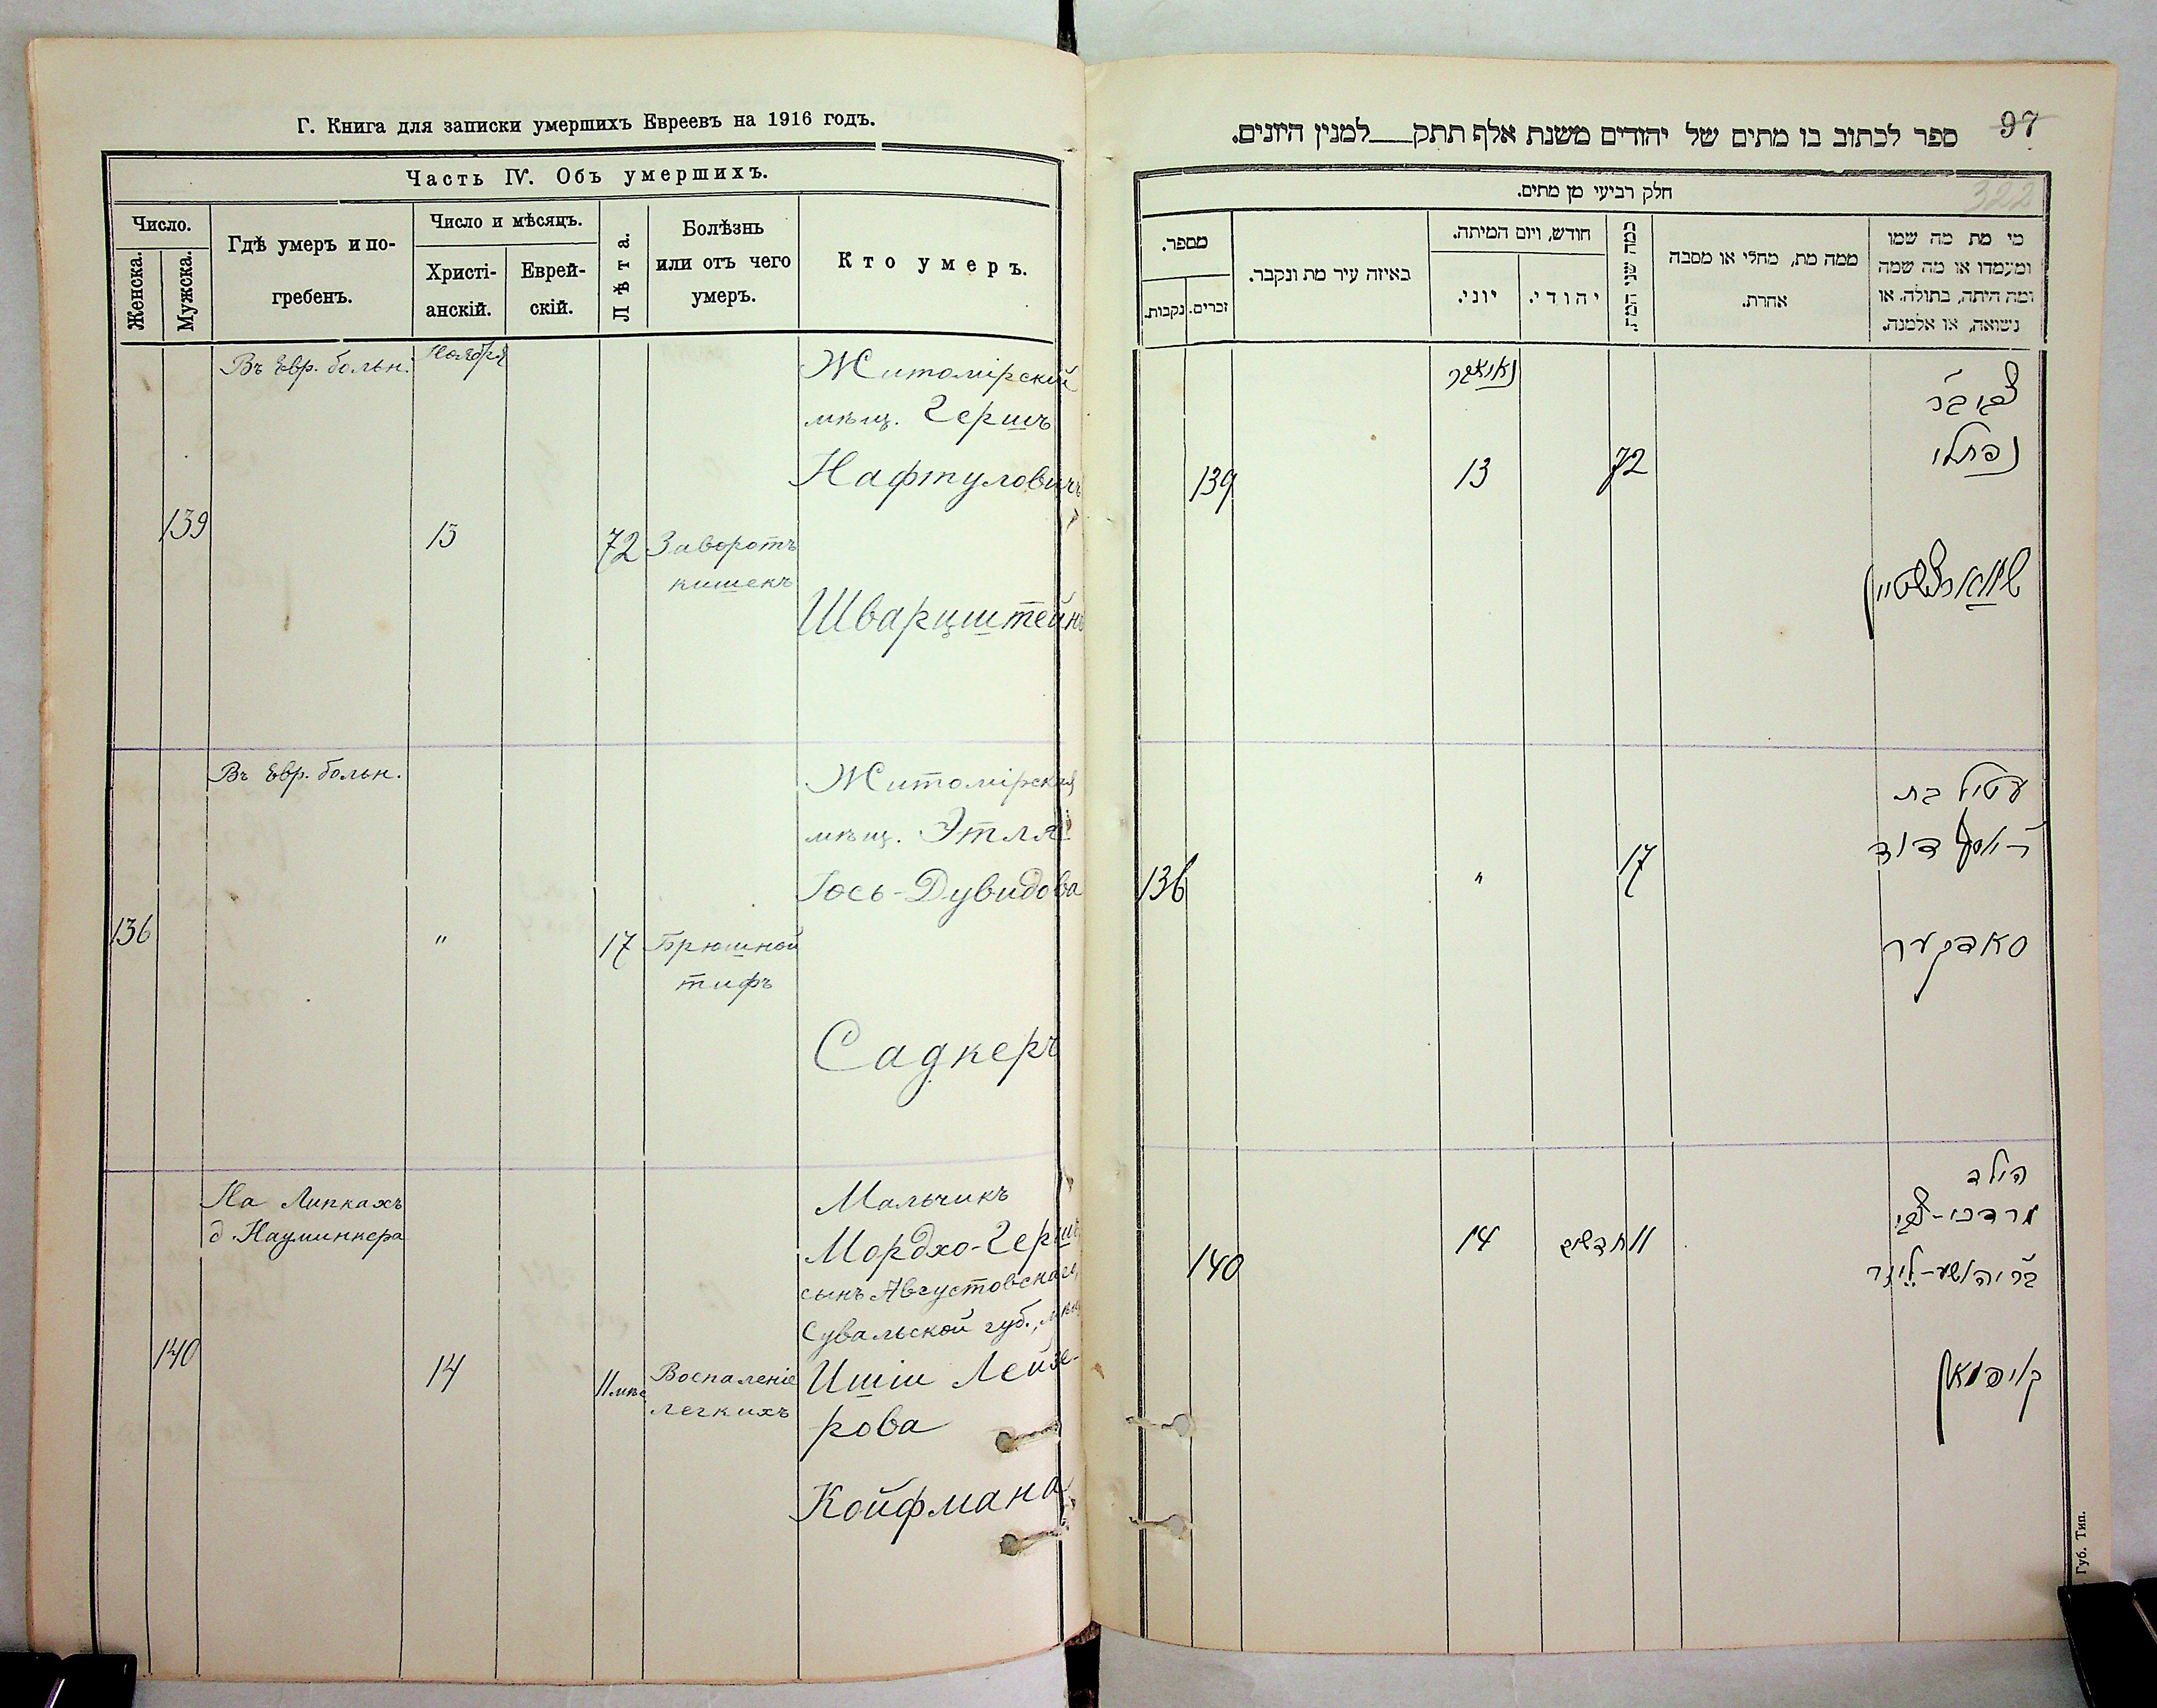 Г. Книга для записки умершихъ Евреевъ на 1916 годъ.
Часть IV. Объ умершихъ.
Число.
Женска.
Мужска.
Гдѣ умеръ и по-
гребенъ.
Число и мѣсяцъ.
Христі-
анскій.
Еврей-
скій.
Лѣта.
Болѣзнь
или отъ чего
умеръ.
Кто умеръ.
Въ Евр. больн.
Ноября
Житомірскій
мѣщ. Гершъ
Нафтуловичъ
139
13
72
Заворотъ
кишекъ
Шварцштейнъ
Въ Евр. больн.
Житомірская
мѣщ. Этля
Іось-Дувидова
136
"
17
Брюшной
тифъ
Садкеръ
На Липкахъ
д. Науминкера
Мальчикъ
Мордхо-Гершъ
сынъ Августовскаго,
Сувальской губ., мѣщ.
140
14
11 мѣс
Воспаленіе
легкихъ
Ишіи Лейзе-
рова
Койфмана
97
322
ספר לכתוב בו מתים של יהודים משנת אלף תתק למנין היונים.
חלק רביעי מן מתים.
מי מת מה שמו
ומעמדו או מה שמה
ומה היתה, בתולה, או
נשואה, או אלמנה.
ממה מת, מחלי או מסבה
אחרת.
כמה שני המת.
חודש, ויום המיתה.
יהודי.
יוני.
באיזה עיר מת ונקבר.
מספר.
זכרים.
נקבות.
צבי ב"ר
נפתלי
נאיאבר
72
13
139
שווארצשטיין
עטיל בת
ר' יוסף דוד
17
"
136
סאדקער
הילד
מרדכי-צבי
ב"ר יהושע-ליזר
11 חדשים
14
140
קויפמאן
Губ. Тип.